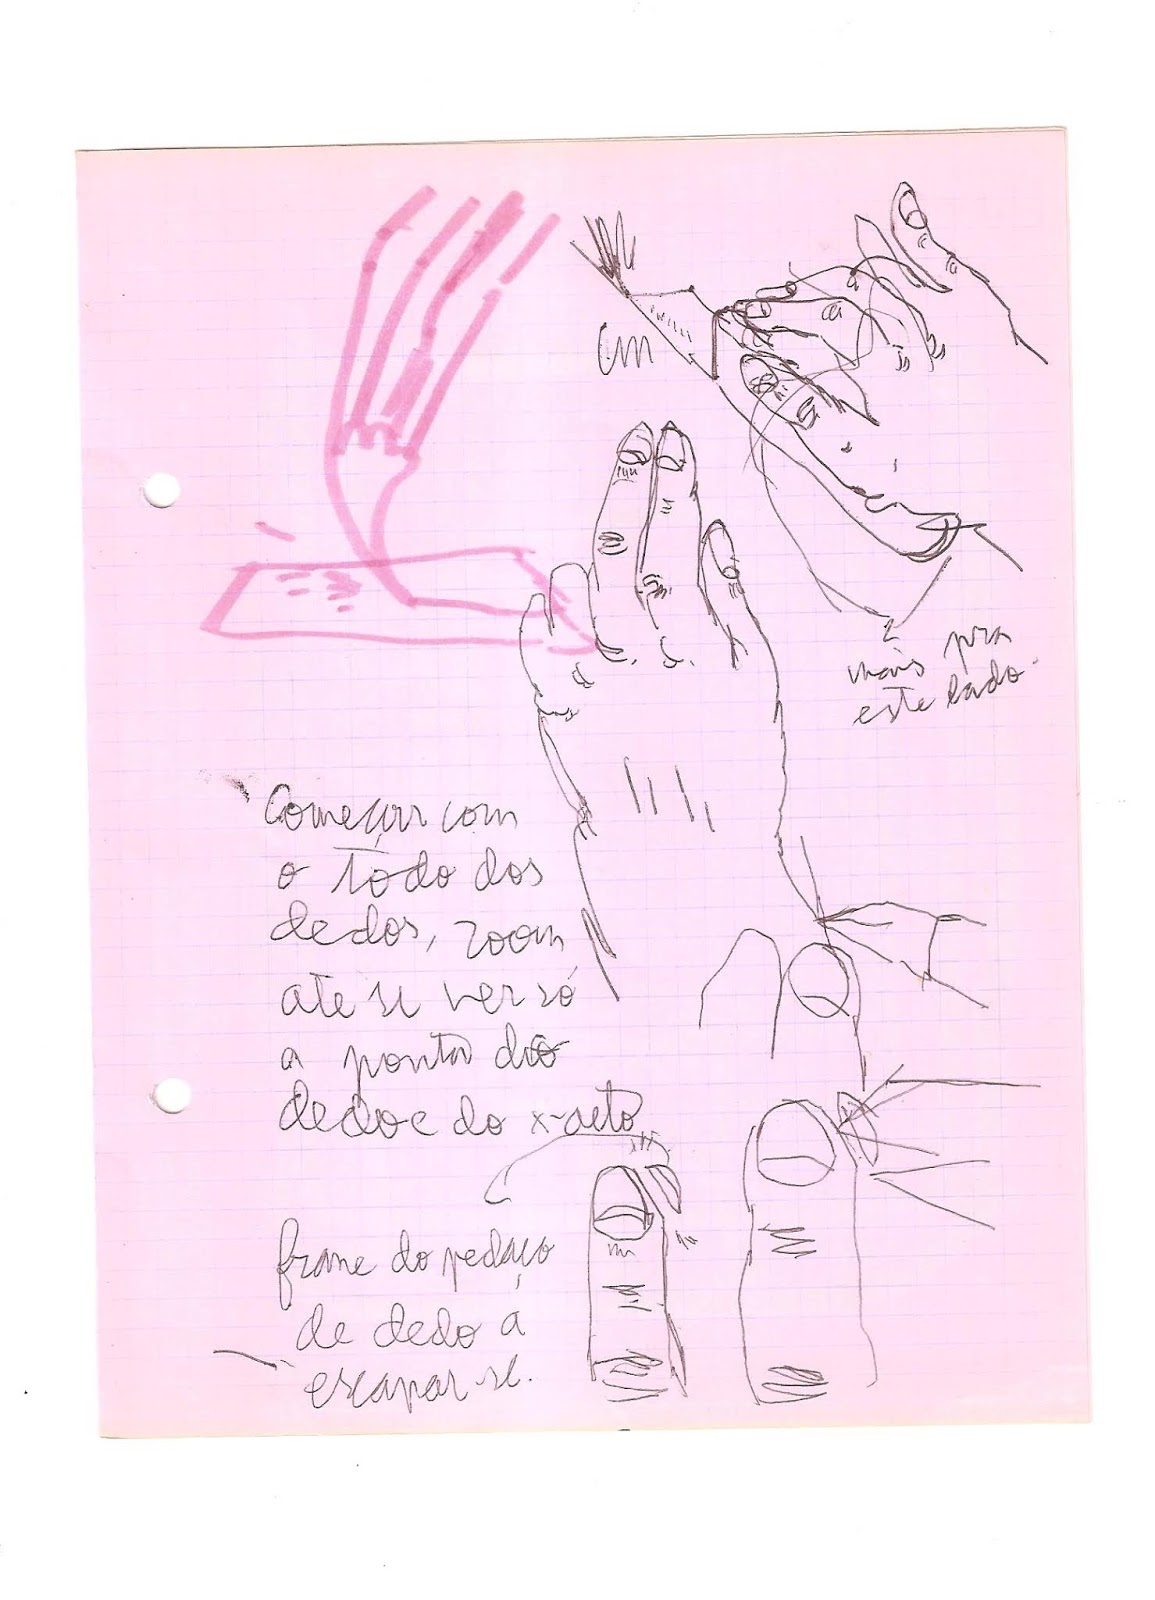 mais pra
este lado
começar com
o todo dos
dedos, zoom
até se ver só
a ponta do
dedo e do x-acto
frame do pedaço
de dedo a
escapar-se.